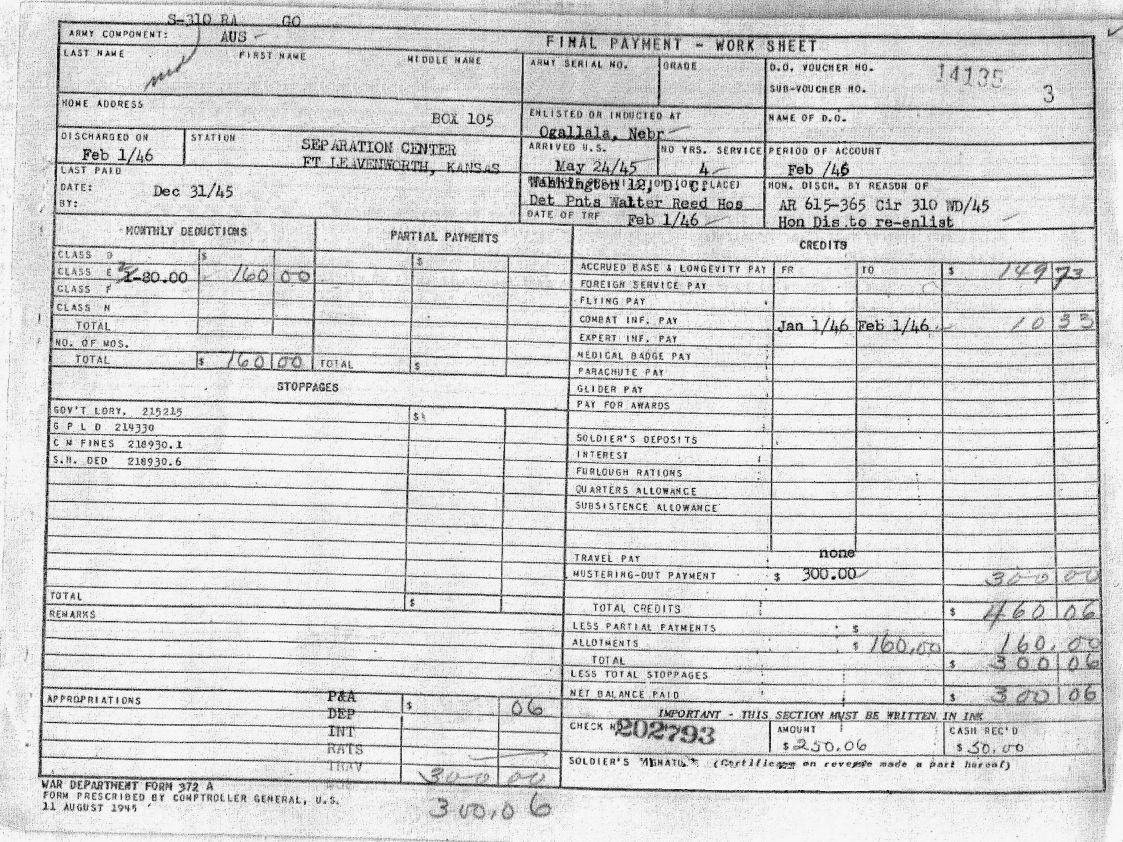 S-310 RA GO
ARMY COMPONENT: AUS -
FINAL PAYMENT - WORK SHEET
LAST NAME FIRST NAME MIDDLE NAME
ARMY SERIAL NO. GRADE
D.O. VOUCHER NO. 14135
SUB-VOUCHER NO. 3
HOME ADDRESS
BOX 105
ENLISTED OR INDUCTED AT
Ogallala, Nebr
NAME OF D.O.
DISCHARGED ON
Feb 1/46
STATION
SEPARATION CENTER
FT LEAVENWORTH, KANSAS
ARRIVED U.S.
May 24/45
NO YRS. SERVICE
4
PERIOD OF ACCOUNT
Feb /46
LAST PAID
DATE: Dec 31/45
BY:
Washington 12, D. C.
Det Pnts Walter Reed Hos
DATE OF TRF Feb 1/46
HON. DISCH. BY REASON OF
AR 615-365 Cir 310 WD/45
Hon Dis to re-enlist
MONTHLY DEDUCTIONS
PARTIAL PAYMENTS
CREDITS
CLASS D $
CLASS E -80.00 160 00
CLASS F
CLASS N
TOTAL
NO. OF MOS.
TOTAL $ 160 00
TOTAL $
ACCRUED BASE & LONGEVITY PAY FR TO $ 149 73
FOREIGN SERVICE PAY
FLYING PAY
COMBAT INF. PAY Jan 1/46 Feb 1/46 10 33
EXPERT INF. PAY
MEDICAL BADGE PAY
PARACHUTE PAY
GLIDER PAY
PAY FOR AWARDS
STOPPAGES
GOV'T LDRY, 215215 $
G P L D 214330
C M FINES 218930.1
S.H. DED 218930.6
SOLDIER'S DEPOSITS
INTEREST
FURLOUGH RATIONS
QUARTERS ALLOWANCE
SUBSISTENCE ALLOWANCE
TRAVEL PAY none
MUSTERING-OUT PAYMENT $ 300.00 300 00
TOTAL $
REMARKS
TOTAL CREDITS $ 460 06
LESS PARTIAL PAYMENTS $
ALLOTMENTS $ 160.00 160.00
TOTAL $ 300 06
LESS TOTAL STOPPAGES
NET BALANCE PAID $ 300 06
APPROPRIATIONS
P&A $ 06
DEP
INT
RATS
TRAV
300 00
IMPORTANT - THIS SECTION MUST BE WRITTEN IN INK
CHECK NO. 202793
AMOUNT
$ 250.06
CASH REC'D
$ 50.00
SOLDIER'S SIGNATURE (Certificate on reverse made a part hereof)
WAR DEPARTMENT FORM 372 A
FORM PRESCRIBED BY COMPTROLLER GENERAL, U.S.
11 AUGUST 1945
300.06